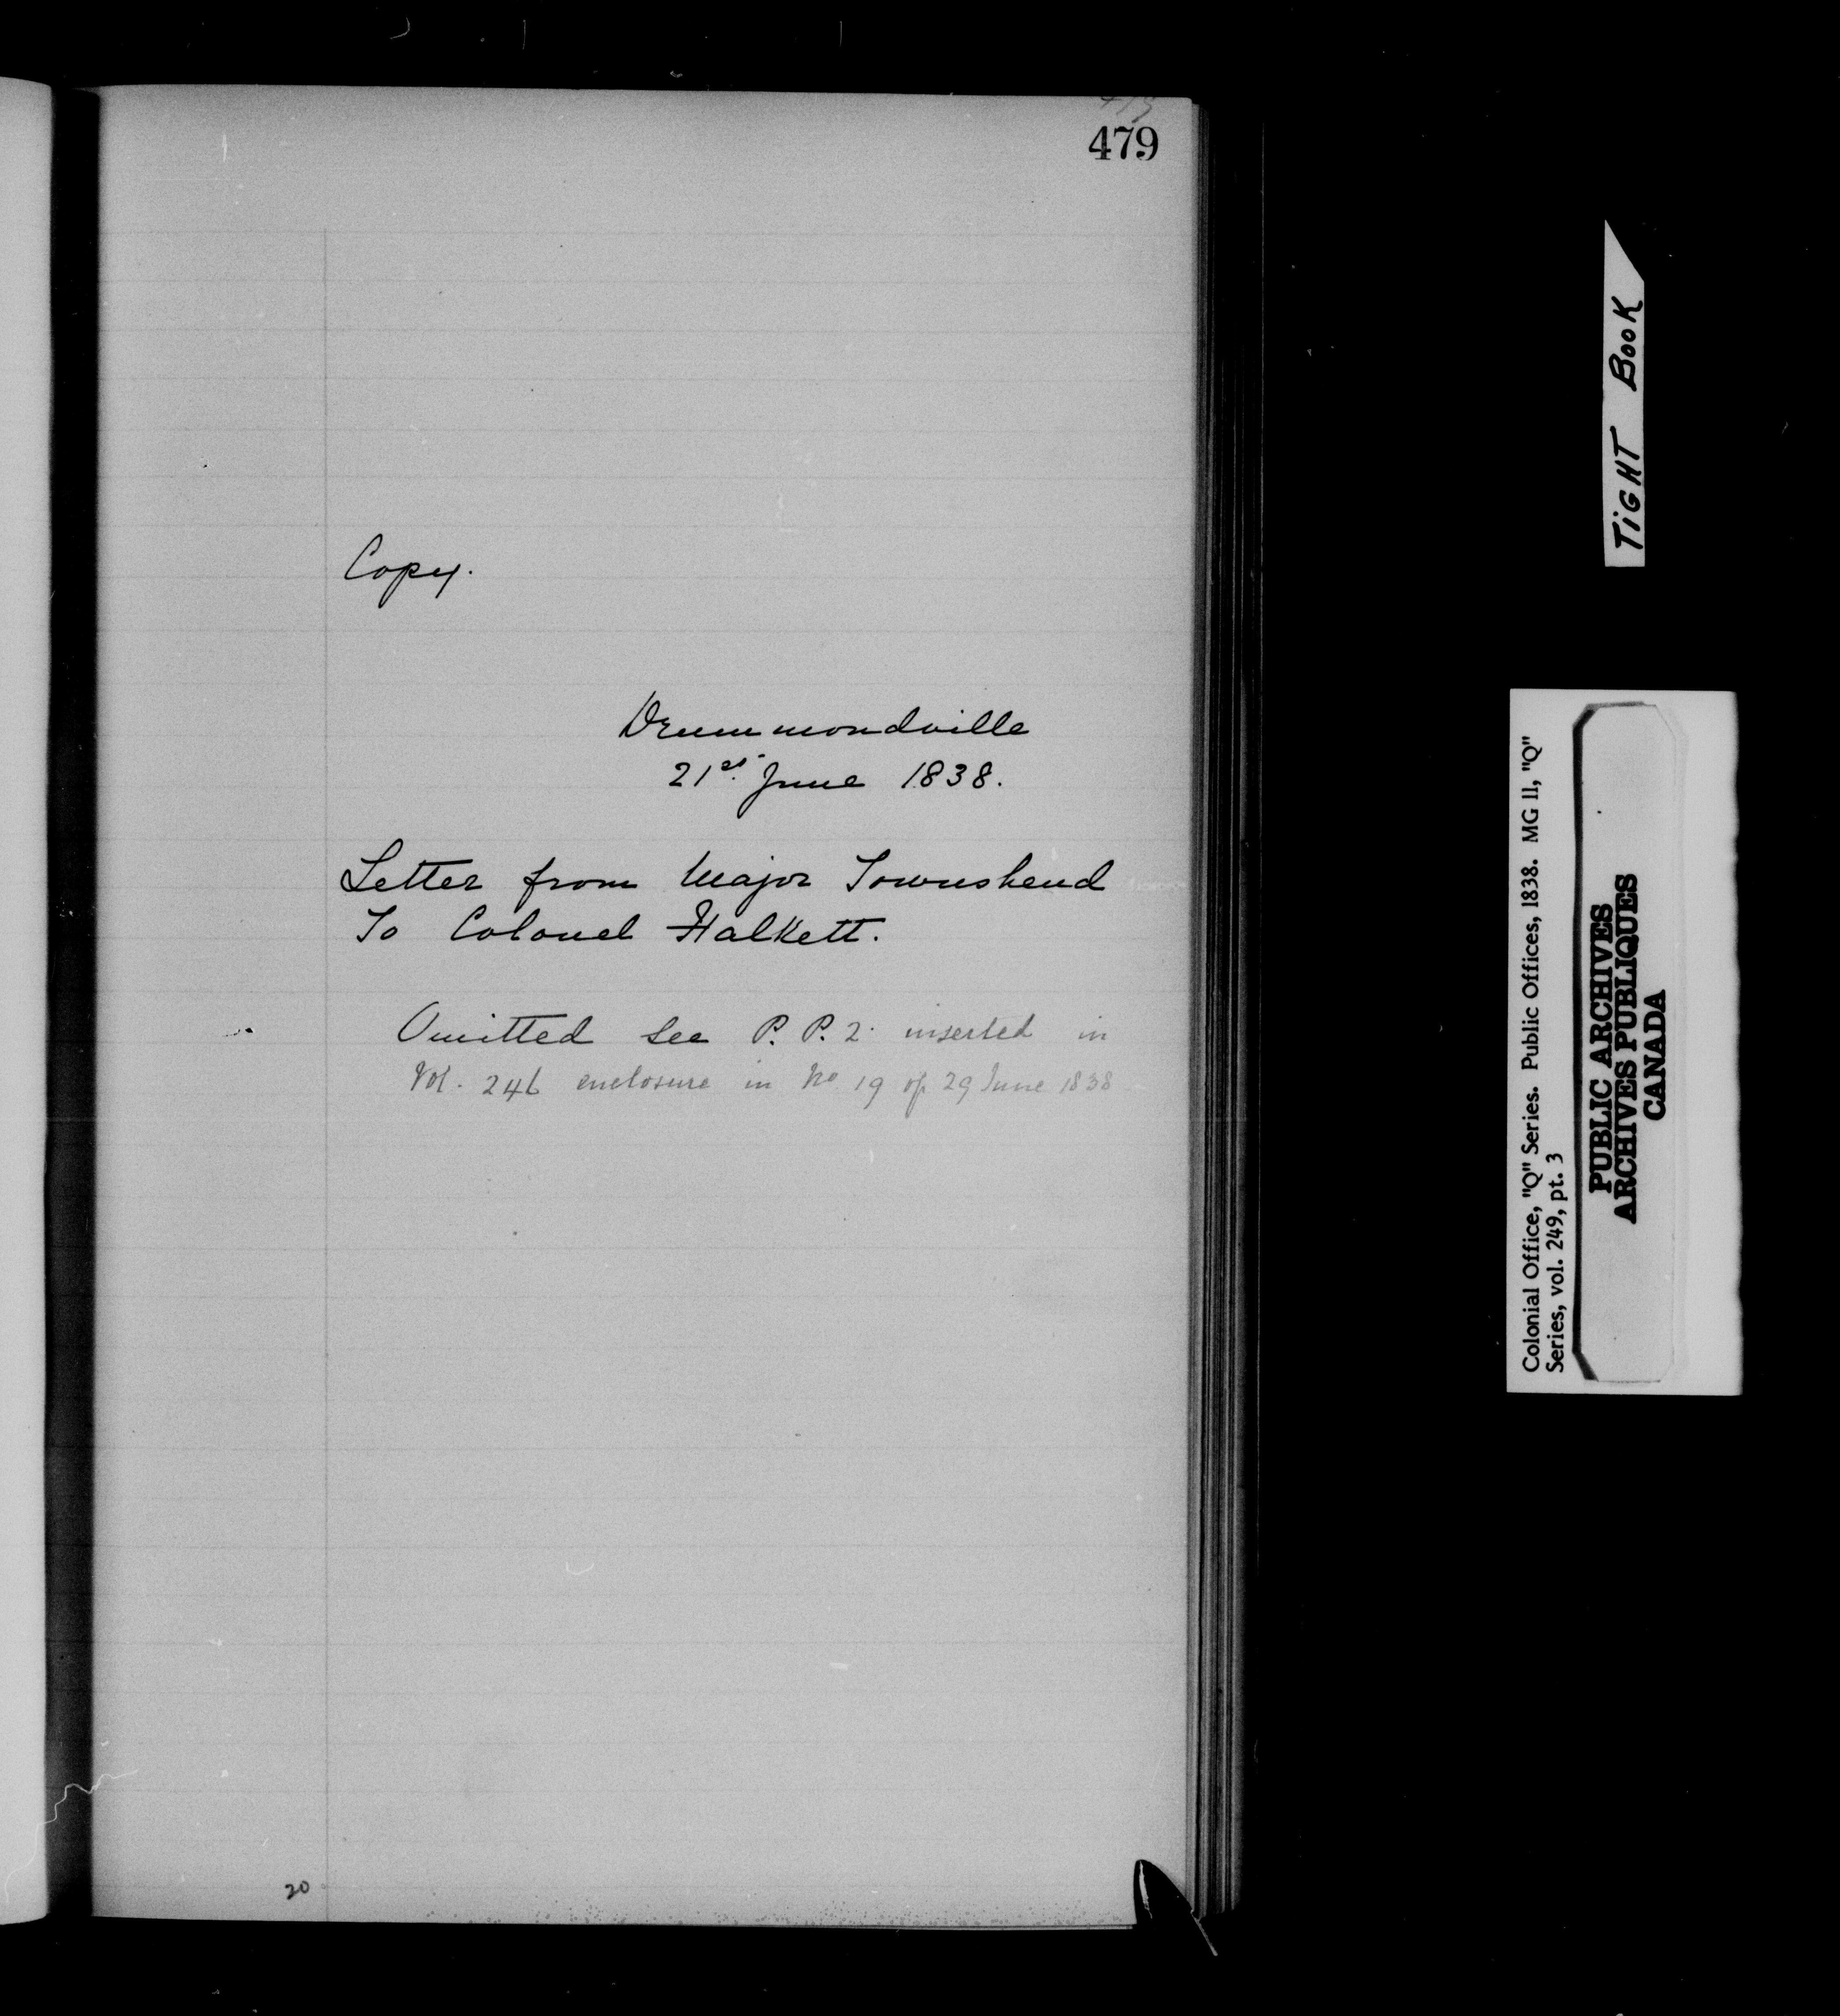 479
Copy.
Drummondville
21st. June 1838.
Letter from Major Townshend
To Colonel Halkett.
Omitted See P. P. 2. inserted in
Vol. 246 enclosure in No 19 of 29 June 1838
20
TiGHT BOOK
Colonial Office, "Q" Series. Public Offices, 1838. MG 11, "Q"
Series, vol. 249, pt. 3
PUBLIC ARCHIVES
ARCHIVES PUBLIQUES
CANADA